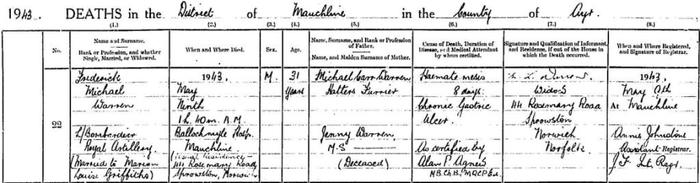 1943. DEATHS in the District of Mauchline in the County of Ayr.
(1.) (2.) (3.) (4.) (5.) (6.) (7.) (8.)
No.
Name and Surname.
Rank or Profession, and whether Single, Married, or Widowed.
When and Where Died.
Sex.
Age.
Name, Surname, and Rank or Profession of Father.
Name, and Maiden Surname of Mother.
Cause of Death, Duration of Disease, and Medical Attendant by whom certified.
Signature and Qualification of Informant, and Residence, if out of the House in which the Death occurred.
When and where Registered, and Signature of Registrar.
22
Frederick
Michael
Warren
L/Bombardier
Royal Artillery
(Married to Marion
Louise Griffiths)
1943.
May
Ninth
1h. 40m. A.M.
Ballochmyle Hosp.
Mauchline
(usual residence
114 Rosemary Road
Sprowston, Norwich
M.
31
Years
Michael Carr Warren
Hatters Furrier
Jenny Warren
M.S
(Deceased)
Haemate mesis
8 days
Chronic Gastric
Ulcer.
As certified by
Alan P. Agnew
M.B. Ch.B.
Widow
114 Rosemary Road
Sprowston
Norwich
Norfolk
1943.
May 9th
At Mauchline
Annie Johnstone
Assistant Registrar.